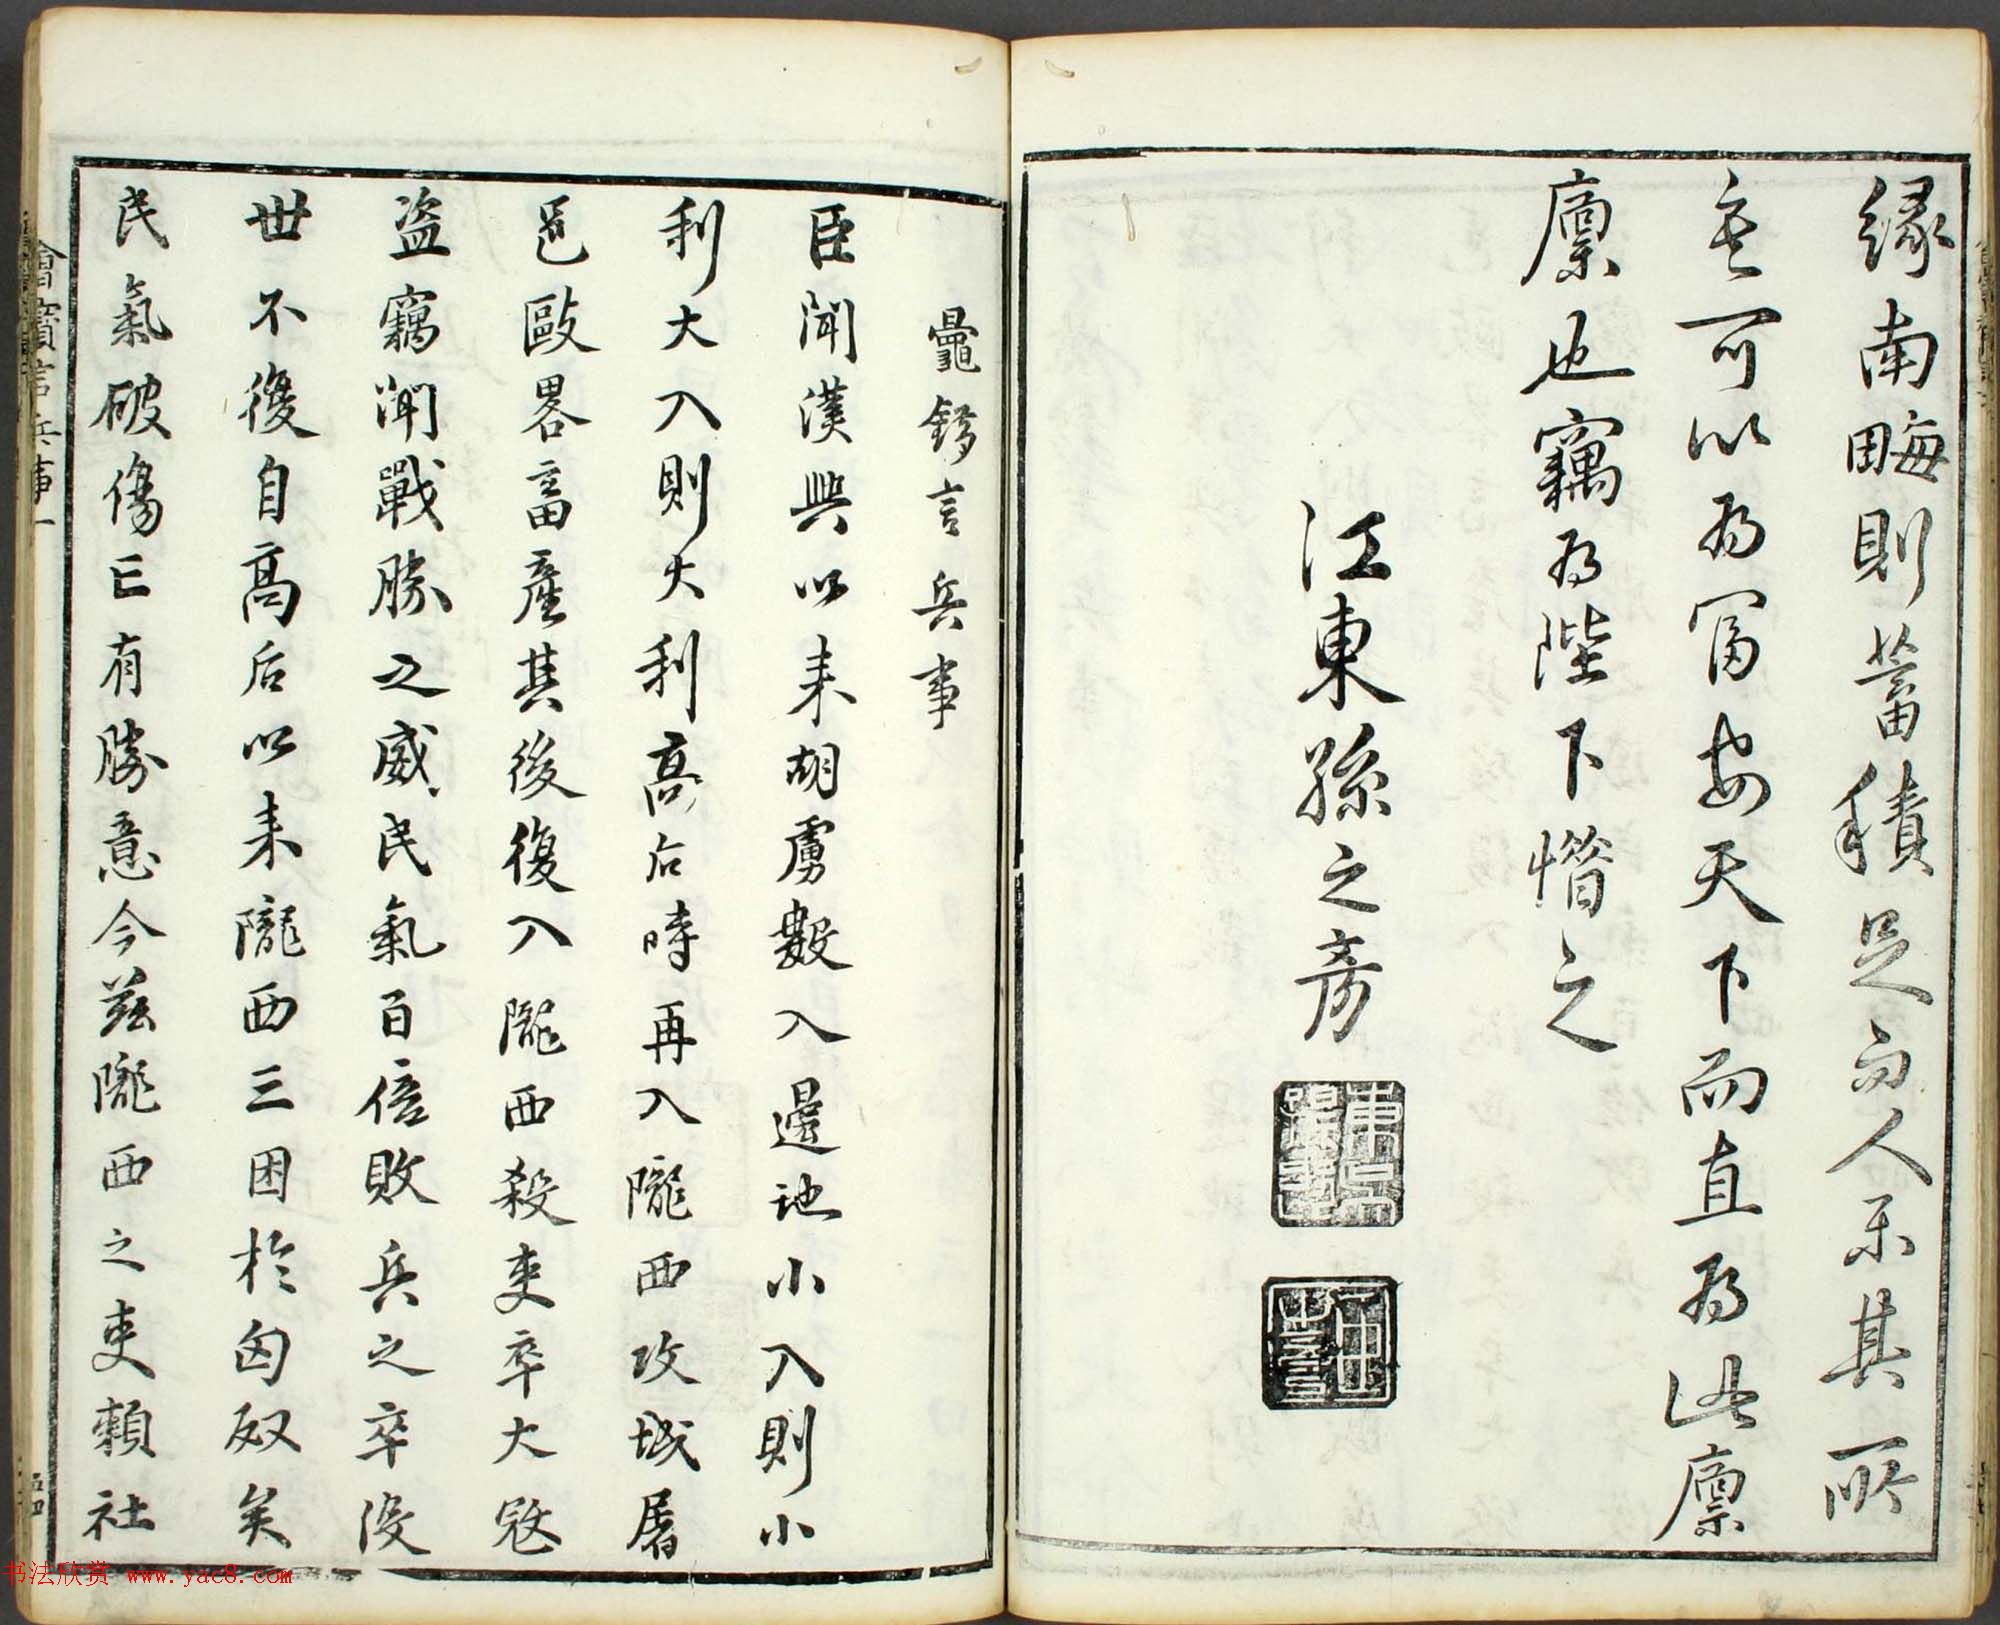 緣南畮則蓄積足而人樂其所
矣可以為富安天下而直為此廩
廩也竊為陛下惜之
江東孫之房
鼂錯言兵事
臣聞漢興以來胡虜數入邊地小入則小
利大入則大利高后時再入隴西攻城屠
邑敺畧畜產其後復入隴西殺吏卒大寇
盜竊聞戰勝之威民氣百倍敗兵之卒沒
世不復自高后以來隴西三困於匈奴矣
民氣破傷亡有勝意今茲隴西之吏賴社
言兵事一
书法欣赏 www.yac8.com